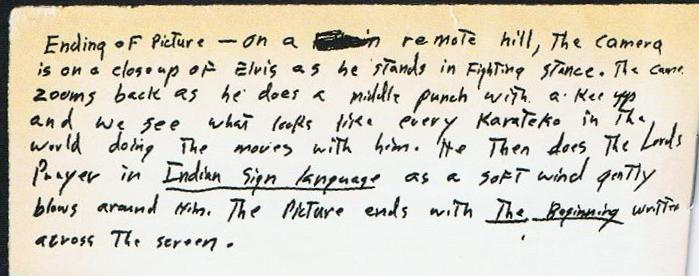 Ending of Picture — on a remote hill, The camera
is on a closeup of Elvis as he stands in Fighting stance. The came
zooms back as he does a middle punch with a Kee yp
and we see what looks like every Karateko in The
world doing The moves with him. He Then does The Lords
Prayer in Indian Sign language as a soft wind gently
blows around Him. The Picture ends with The Beginning written
across The screen.